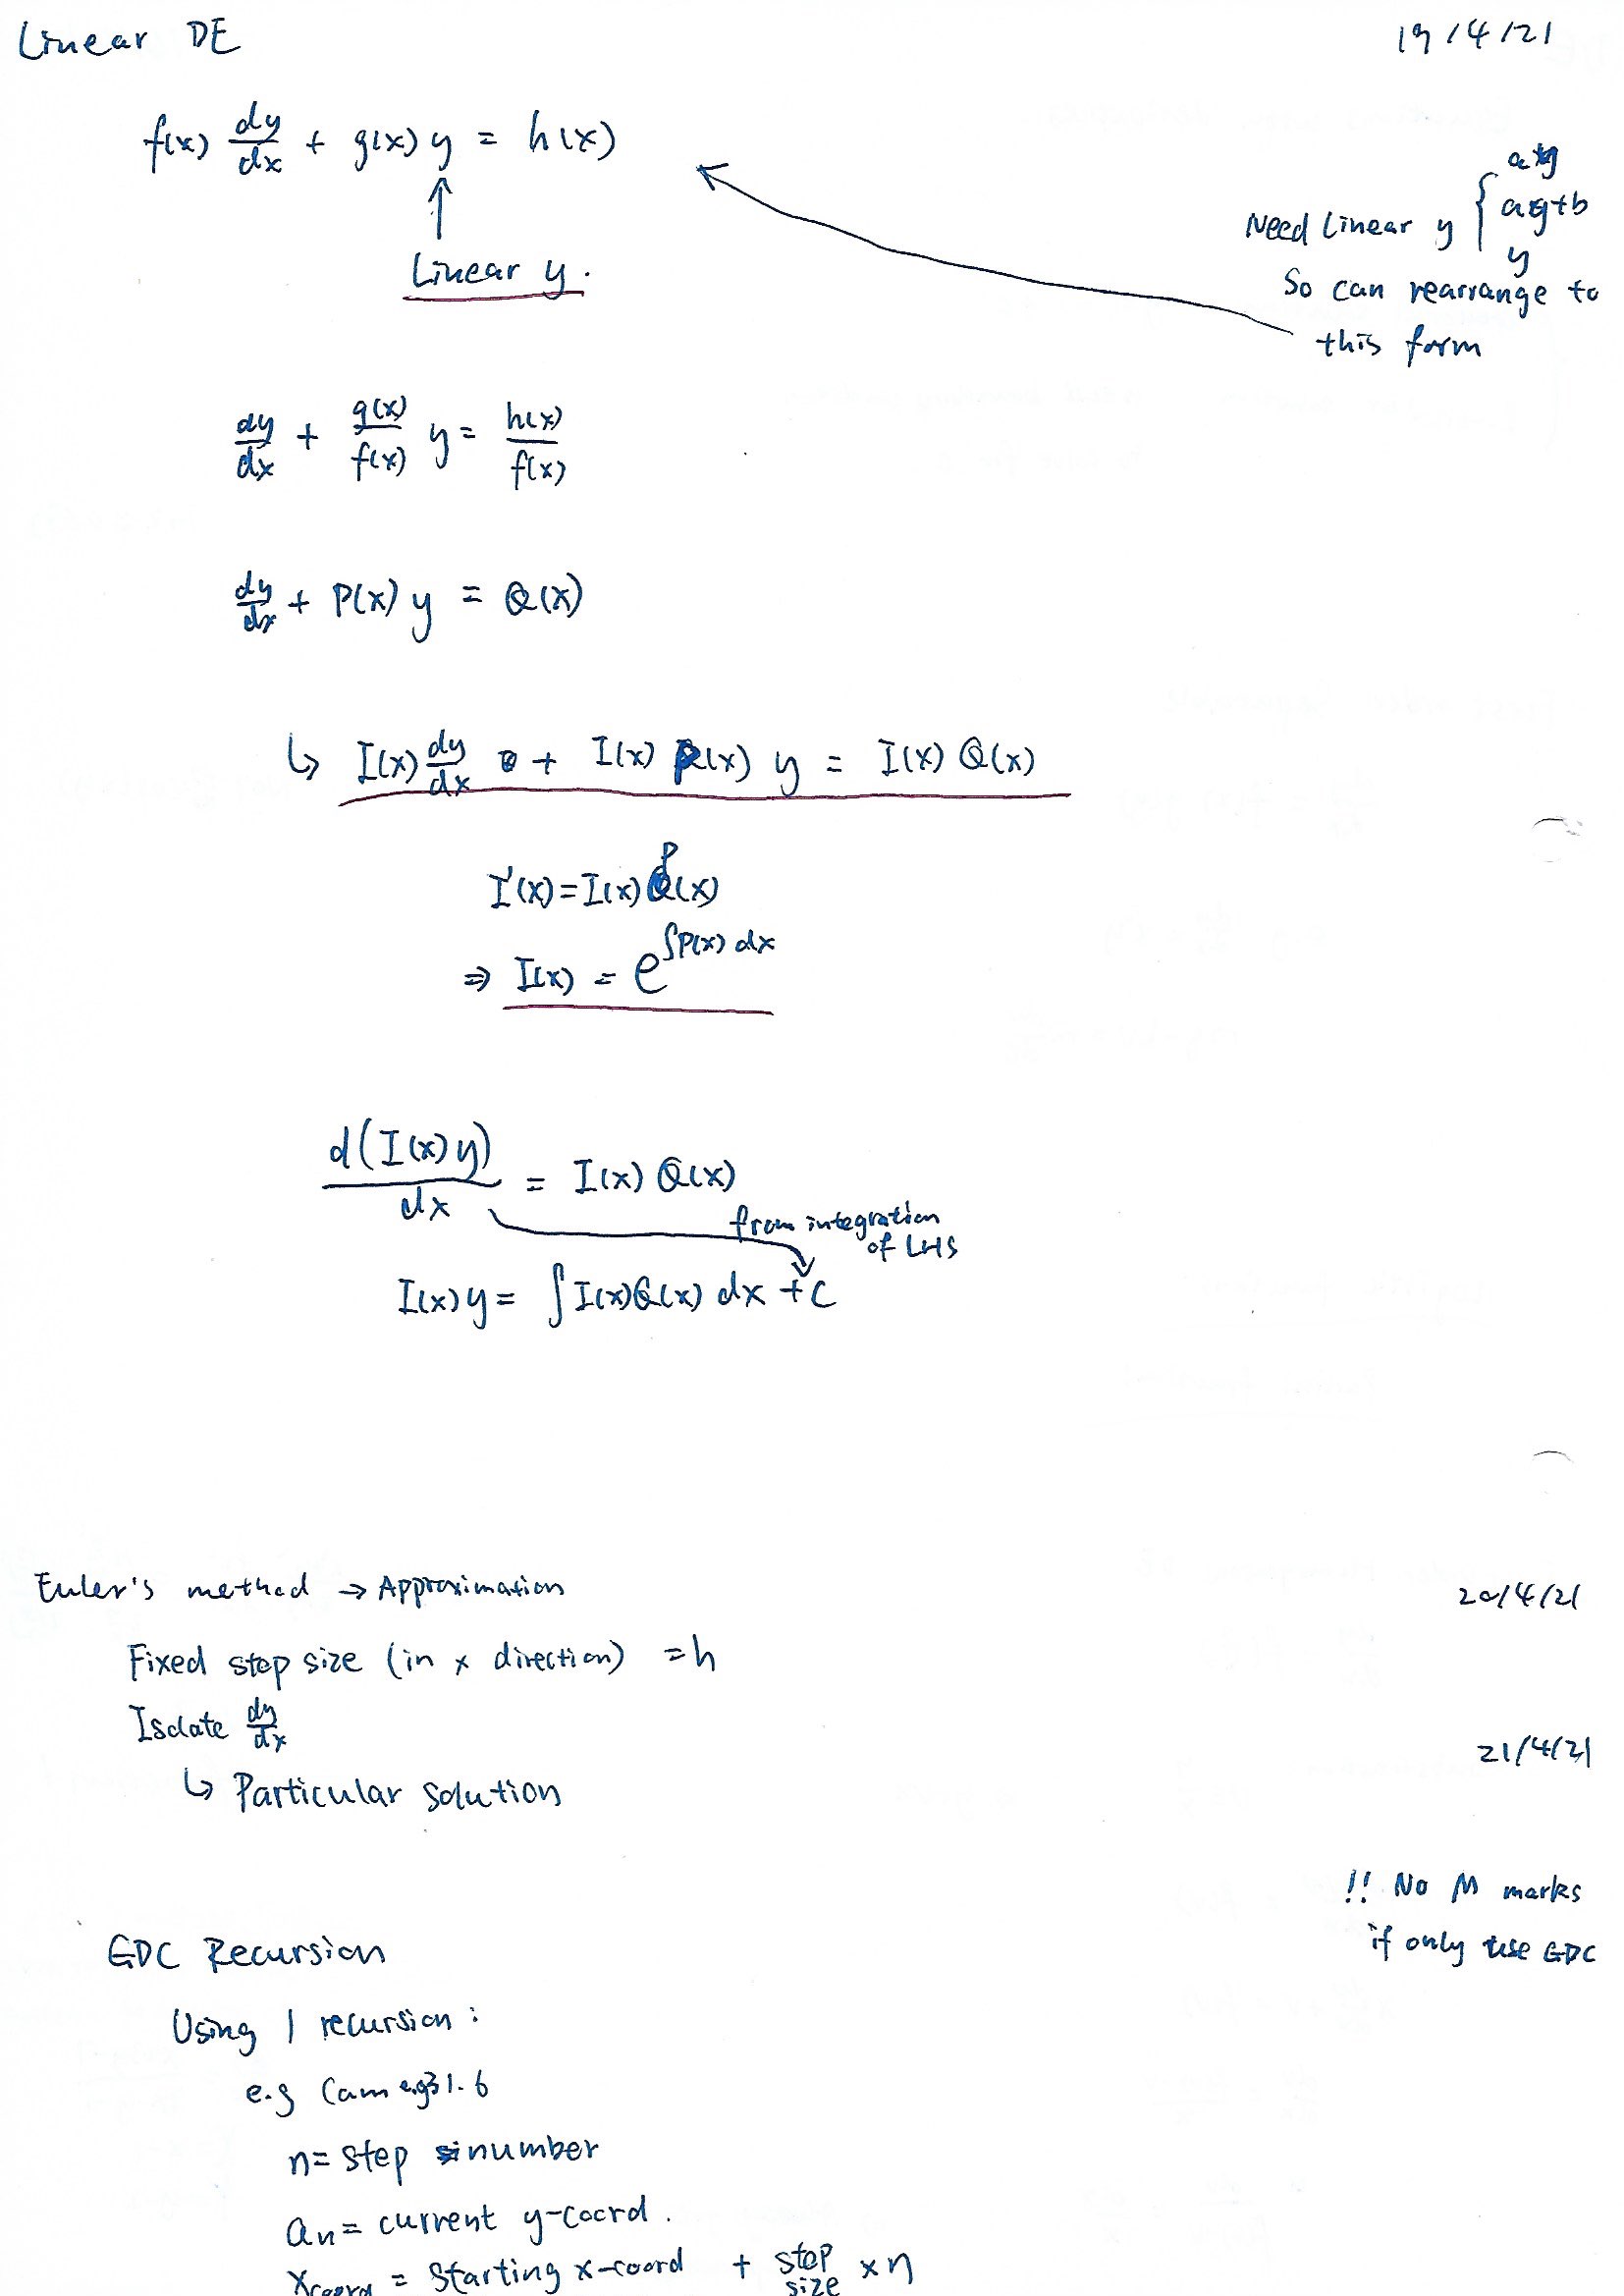 Linear DE 19/4/21
f(x) dy/dx + g(x) y = h(x)
↑
Linear y.
Need Linear y { ay
ay+b
y
So can rearrange to
this form
dy/dx + g(x)/f(x) y = h(x)/f(x)
dy/dx + P(x) y = Q(x)
↳ I(x) dy/dx + I(x) P(x) y = I(x) Q(x)
I'(x) = I(x) P(x)
⇒ I(x) = e^∫P(x) dx
d(I(x) y)/dx = I(x) Q(x)
from integration
of LHS
I(x) y = ∫ I(x)Q(x) dx + C
Euler's method → Approximation 20/4/21
Fixed step size (in x direction) = h
Isolate dy/dx
21/4/21
↳ Particular solution
!! No M marks
if only use GDC
GDC Recursion
Using 1 recursion :
e.g Cam e.g31.6
n = step number
an = current y-coord.
xcoord = starting x-coord + step size × n